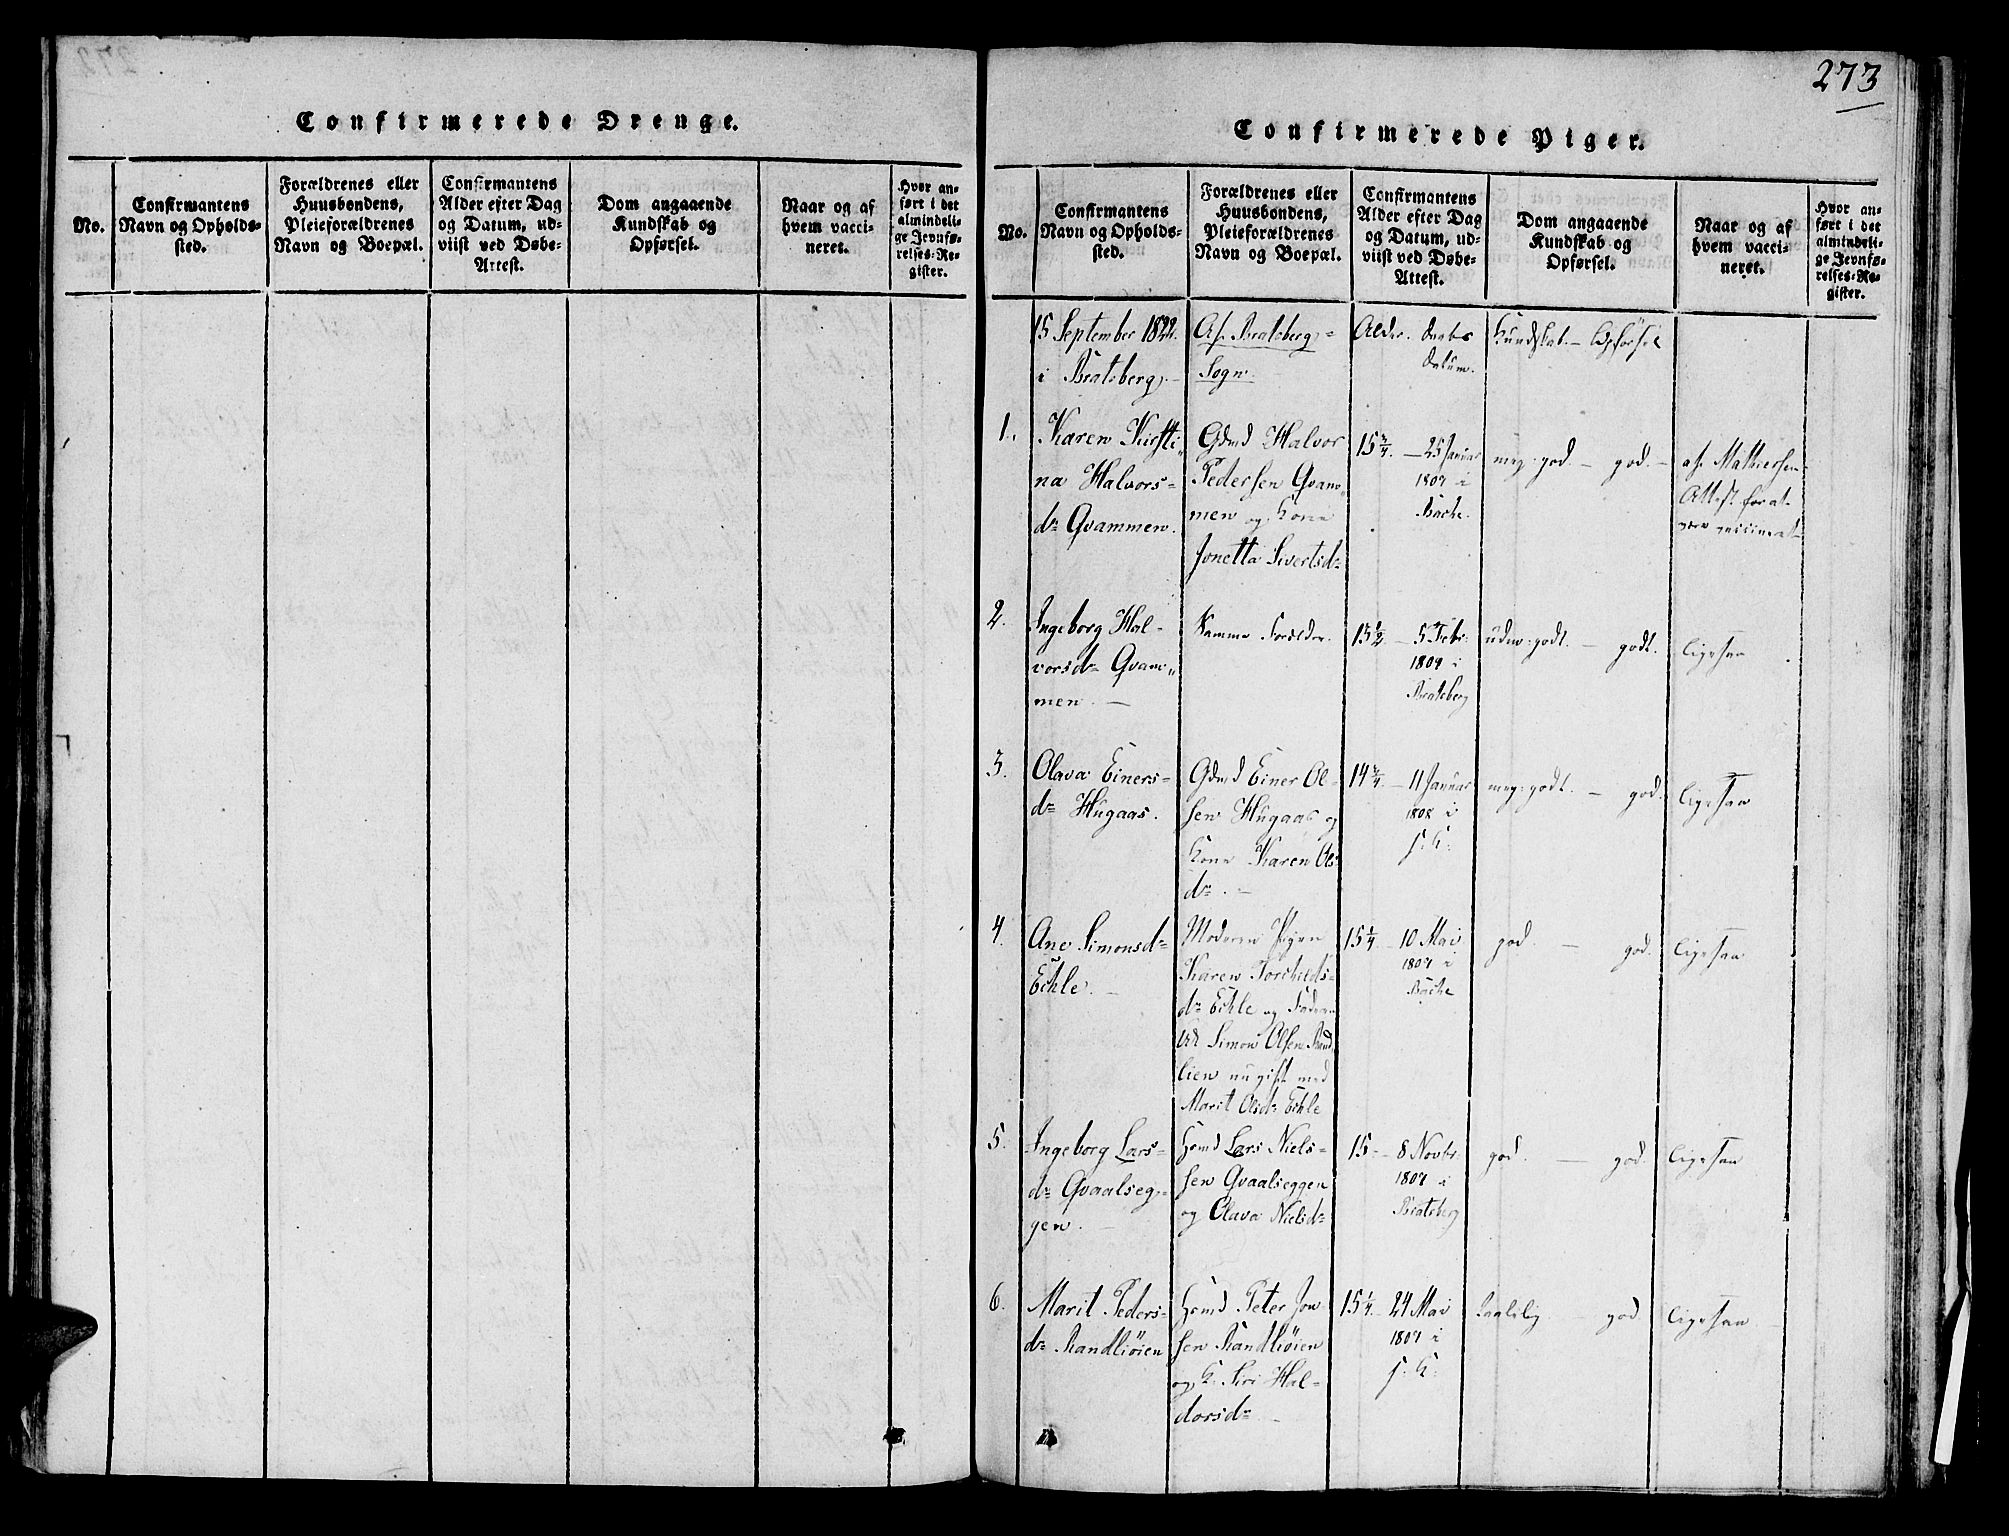 273
Confirmerede Drenge.
No.
Confirmantens
Navn og Opholds-
sted.
Forældrenes eller
Huusbondens,
Pleieforældrenes
Navn og Boepæl.
Confirmantens
Alder efter Dag
og Datum, ud-
viist ved Døbe-
Attest.
Dom angaaende
Kundskab og
Opførsel.
Naar og af
hvem vacci-
neret.
Hvor an-
ført i det
almindeli-
ge Jevnfø-
relses-Re-
gister.
Confirmerede Piger.
No.
Confirmantens
Navn og Opholds-
sted.
Forældrenes eller
Huusbondens,
Pleieforældrenes
Navn og Boepæl.
Confirmantens
Alder efter Dag
og Datum, ud-
viist ved Døbe-
Attest.
Dom angaaende
Kundskab og
Opførsel.
Naar og af
hvem vacci-
neret.
Hvor an-
ført i det
almindeli-
ge Jevnfø-
relses-Re-
gister.
15 September 1822.
i Bratsberg.
Af Bratsberg
Sogn
Alder. Daabs
Datum.
Kundskab. – Opførsel
1.
Karen Kirsti-
na Halvors-
dr Qvammen.
Gdmd Halvor
Pedersen Qvam-
men og Kone
Jonetta Sivertsdr
15 3/4. – 25 Januar
1807 i
Bache.
meg: god. – god. –
af Mathiesen
Attest for at
være vaccineret
2.
Ingeborg Hal-
vorsdr Qvam-
men. –
Samme Forældre.
15 1/2 – 5 Febr:
1809 i
Bratsberg
udm: godt. – godt.
ligesaa
3.
Olava Einers-
dr Hugaas.
Gdmd Einer Ol-
sen Hugaas og
Kone Karen Ols-
dr. –
14 3/4. – 11 Januar
1808 i
S: K:
meg: godt. – god.
ligesaa
4.
Ane Simonsdr
Echle. –
Moderen Pigen
Karen Torchilds-
dr Echle og Faderen
Simon Olsen Rand-
lien nu gift med
Marit Olsdr Echle
15 1/4 – 10 Mai
1807 i
Bache
god. – god.
ligesaa
5.
Ingeborg Lars-
dr Qvaalseg-
gen. –
Hsmd Lars Niels-
sen Qvaalseggen
og Olava Nielsdr
15. – 8 Novbr.
1807 i
Bratsberg
god. – god.
ligesaa
6.
Marit Peders-
dr Randliöien
Hsmd Peter Jon-
sen Randliöien
og K. Siri Hal-
dorsdr –
15 1/4. – 24 Mai
1807 i
S: K:
taalelig – god.
ligesaa